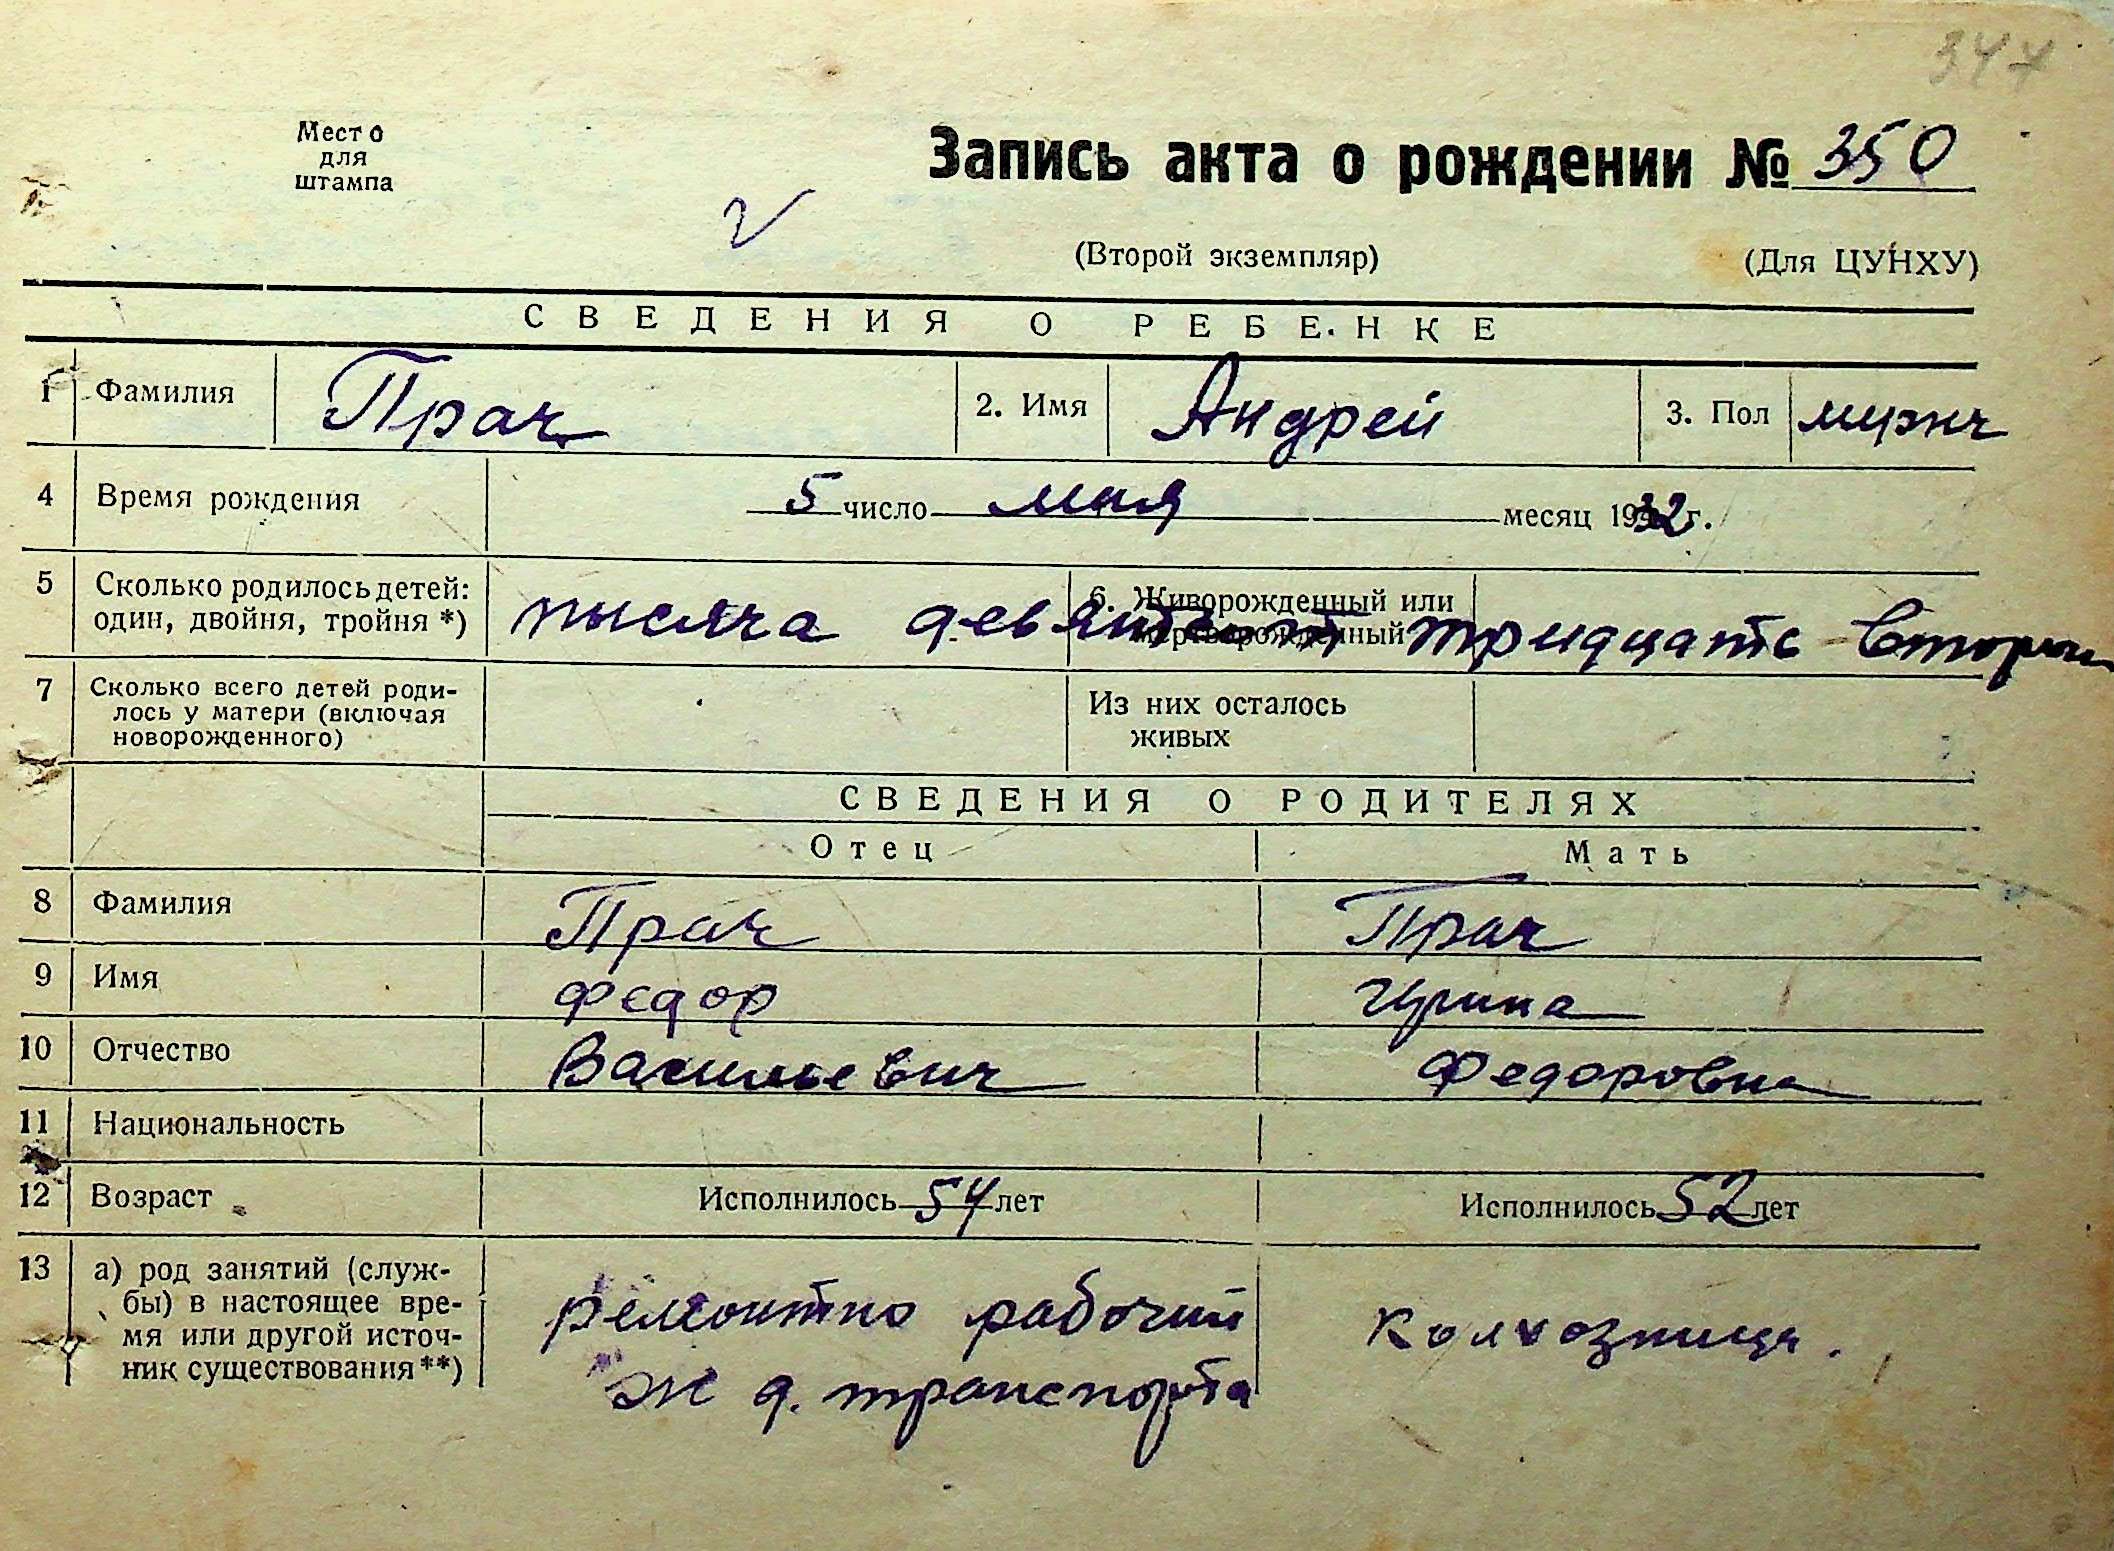 347
Место
для
штампа
Запись акта о рождении № 350
(Второй экземпляр) (Для ЦУНХУ)
СВЕДЕНИЯ О РЕБЕНКЕ
1 Фамилия Прач 2. Имя Андрей 3. Пол мужч
4 Время рождения 5 число мая месяц 1932 г.
5 Сколько родилось детей: один, двойня, тройня *) 6. Живорожденный или мертворожденный
тысяча девятьсот тридцать вторы
7 Сколько всего детей роди-
лось у матери (включая
новорожденного)
Из них осталось
живых
СВЕДЕНИЯ О РОДИТЕЛЯХ
Отец Мать
8 Фамилия Прач Прач
9 Имя Федор Ирина
10 Отчество Васильевич Федоровна
11 Национальность
12 Возраст Исполнилось 54 лет Исполнилось 52 лет
13 а) род занятий (служ-
бы) в настоящее вре-
мя или другой источ-
ник существования**)
ремонтно рабочий
ж д. транспорта
колхозница.